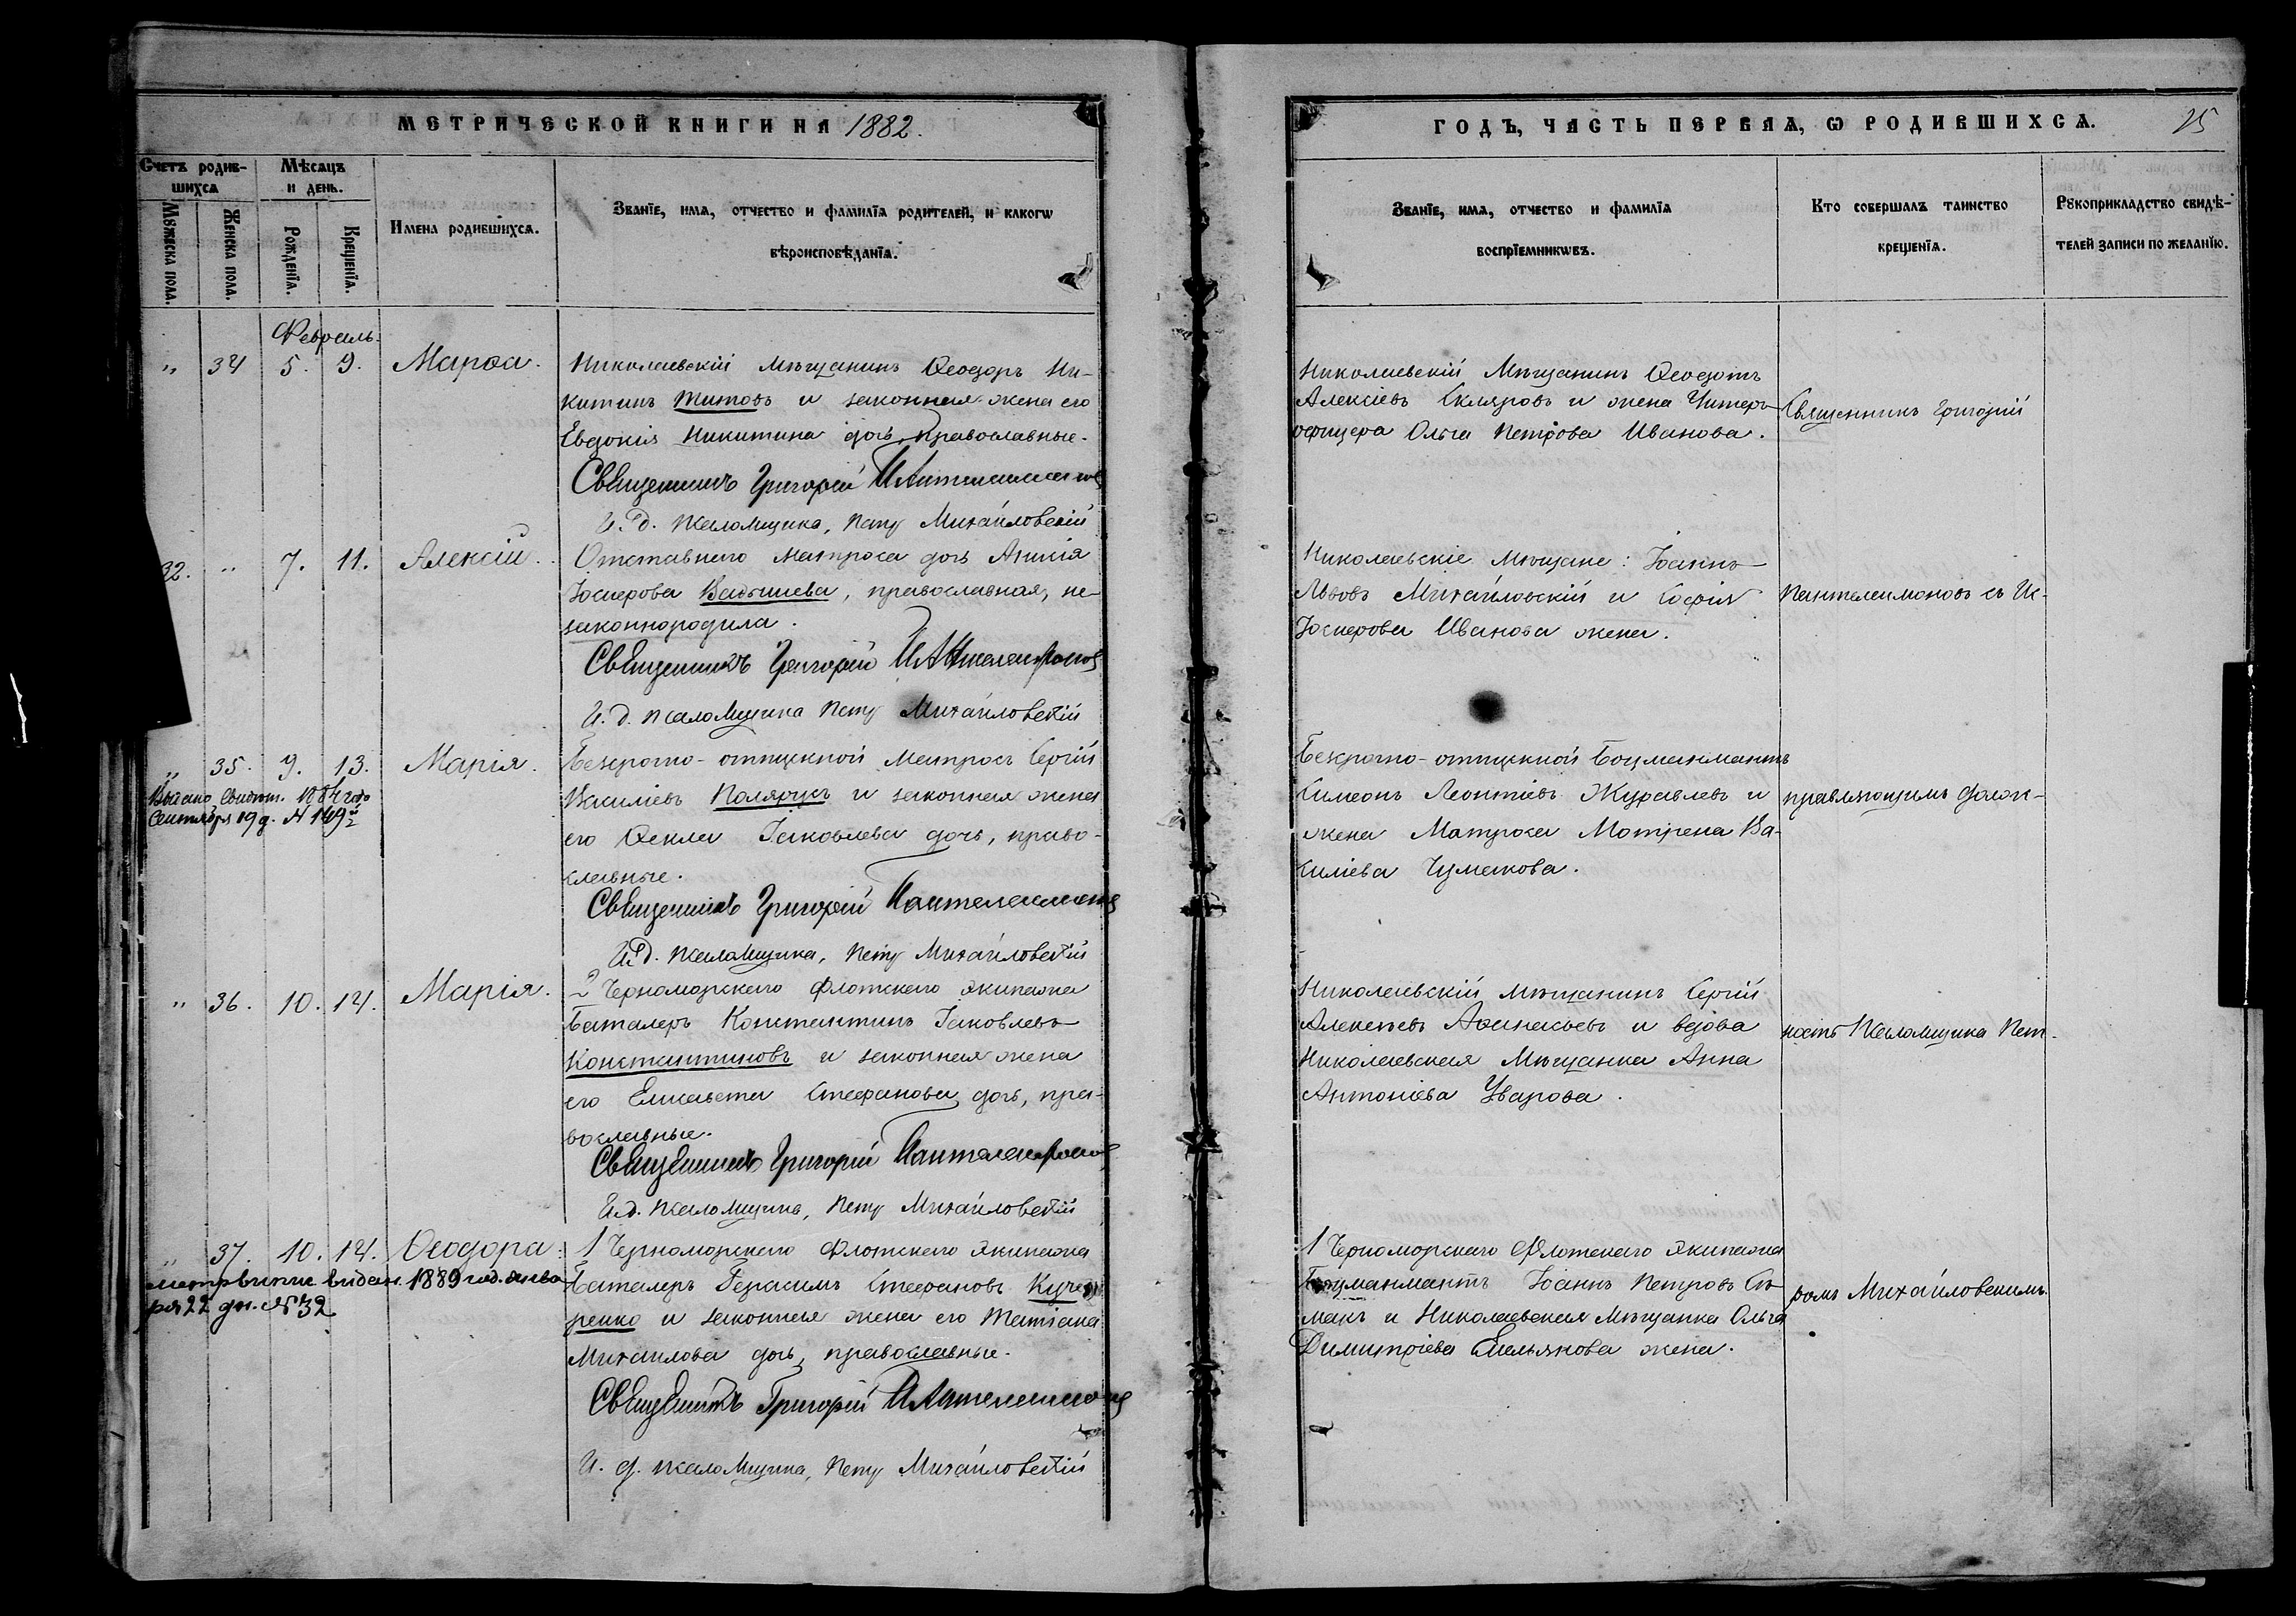 МЕТРИЧЕСКОЙ КНИГИ НА 1882.
Счетъ родив-
шихсѧ
Мѣсѧцъ
и день.
Мꙋжеска пола.
Женска пола.
Рожденїѧ.
Крещенїѧ.
Имена родившихсѧ.
Званїе, имѧ, отчество и фамилїѧ родителей, и какогѡ
вѣроисповѣданїѧ.
Февраль.
„ 34 5. 9. Марѳа.
Николаевскій Мѣщанинъ Ѳеодоръ Ни-
китинъ Титовъ и законная жена его
Евдокія Никитина дочь, православные.
Священникъ Григорій Пантелеимоновъ
И. д. псаломщика, Петръ Михайловскій
32. „ 7. 11. Алексій.
Отставнаго матроса дочь
Іосифова, православная, не-
законнородила.
Священникъ Григорій Пантелеимоновъ
И. д. псаломщика Петръ Михайловскій
„ 35. 9. 13. Марія.
Выдано свидѣт. 1884 года
Сентября 19 д. № 149
Безсрочно-отпускной Матросъ Сергій
Василіевъ Полярукъ и законная жена
его Ѳекла Іаковлева дочь, право-
славные.
Священникъ Григорій Пантелеимоновъ
И. д. псаломщика, Петръ Михайловскій
„ 36. 10. 14. Марія.
2 Черноморскаго флотскаго экипажа
Баталеръ Константинъ Іаковлевъ
Константиновъ и законная жена
его Елисавета Стефанова дочь, пра-
вославные.
Священникъ Григорій Пантелеимоновъ
И. д. псаломщика, Петръ Михайловскій
„ 37. 10. 14. Ѳеодора.
видан. 1889 год. янва
ря 22 дн. № 32
1 Черноморскаго флотскаго экипажа
Баталеръ Герасимъ Стефановъ Куче-
ренко и законная жена его Татіана
Михаилова дочь, православные.
Священникъ Григорій Пантелеимоновъ
И. д. псаломщика, Петръ Михайловскій
ГОДЪ, ЧАСТЬ ПЕРВАѦ, Ѡ РОДИВШИХСѦ. 25
Званїе, имѧ, отчество и фамилїѧ
воспрїемникѡвъ.
Кто совершалъ таинство
крещенїѧ.
Рꙋкоприкладство свидѣ-
телей записи по желанїю.
Николаевскій Мѣщанинъ Ѳеодотъ
Алексіевъ Скляровъ и жена Унтеръ-
офицера Ольга Петрова Иванова.
Священникъ Григорій
Николаевскіе Мѣщане: Іоаннъ
Львовъ Михайловскій и Софія
Іосифова Иванова жена.
Пантелеимоновъ съ Ис-
Безсрочно-отпускной Боцманматъ
Симеонъ Леонтіевъ Журавлевъ и
жена Матроса Матрена Ва-
силіева Чумакова.
правляющимъ долж-
Николаевскій мѣщанинъ Сергій
Алексѣевъ Аѳанасьевъ и вдова
Николаевская Мѣщанка Анна
Антоніева Уварова.
ность Псаломщика Пет-
1 Черноморскаго Флотскаго экипажа
Боцманматъ Іоаннъ Петровъ Си-
макъ и Николаевская Мѣщанка Ольга
Димитріева Емельянова жена.
ромъ Михайловскимъ.